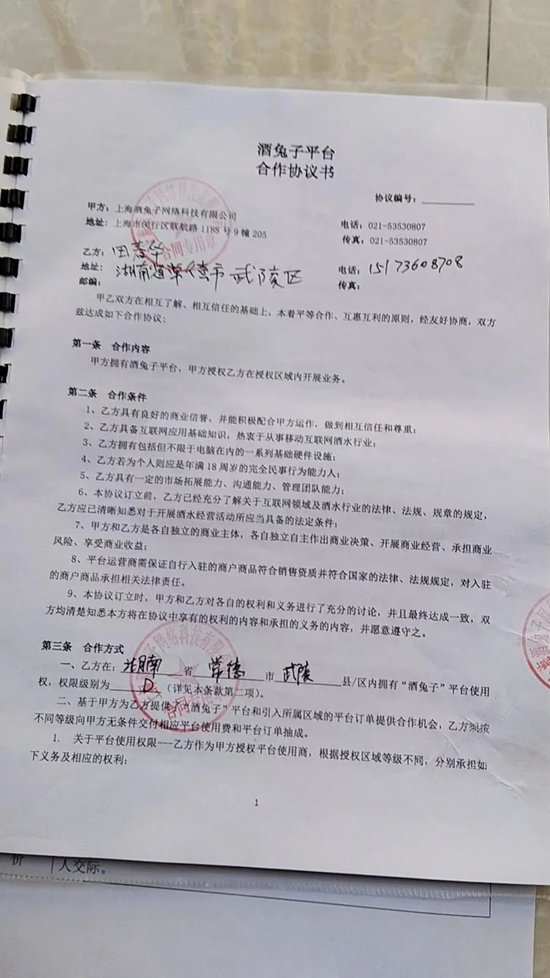 酒兔子平台
合作协议书
协议编号：
甲方：上海酒兔子网络科技有限公司
电话：021-53530807
地址：上海市闵行区联航路1188号9幢205
传真：021-53530807
合同专用章
乙方：田
电话：15173608708
地址：湖南省常德市武陵区
传真：
邮编：
甲乙双方在相互了解、相互信任的基础上，本着平等合作、互惠互利的原则，经友好协商，双方
兹达成如下合作协议：
第一条 合作内容
甲方拥有酒兔子平台，甲方授权乙方在授权区域内开展业务。
第二条 合作条件
1、乙方具有良好的商业信誉，并能积极配合甲方运作，做到相互信任和尊重；
2、乙方具备互联网应用基础知识，热衷于从事移动互联网酒水行业；
3、乙方拥有包括但不限于电脑在内的一系列基础硬件设施；
4、乙方若为个人则应是年满18周岁的完全民事行为能力人；
5、乙方具有一定的市场拓展能力、沟通能力、管理团队能力；
6、本协议订立前，乙方已经充分了解关于互联网领域及酒水行业的法律、法规、规章的规定，
乙方应已清晰知悉对于开展酒水经营活动所应当具备的法定条件；
7、甲方和乙方是各自独立的商业主体，各自独立自主作出商业决策、开展商业经营、承担商业
风险、享受商业收益；
8、平台运营商需保证自行入驻的商户商品符合销售资质并符合国家的法律、法规规定，对入驻
的商户商品承担相关法律责任。
9、本协议订立时，甲方和乙方对各自的权利和义务进行了充分的讨论，并且最终达成一致，双
方均清楚知悉本方将在协议中享有的权利的内容和承担的义务的内容，并愿意遵守之。
第三条 合作方式
一、乙方在：湖南省常德市武陵县/区内拥有“酒兔子”平台使用
权，权限级别为D（详见本条款第二项）。
二、基于甲方为乙方提供“酒兔子”平台和引入所属区域的平台订单提供合作机会，乙方须按
不同等级向甲方无条件交付相应平台使用费和平台订单抽成。
1. 关于平台使用权限---乙方作为甲方授权平台使用商，根据授权区域等级不同，分别承担如
下义务及相应的权利：
1
人交际。